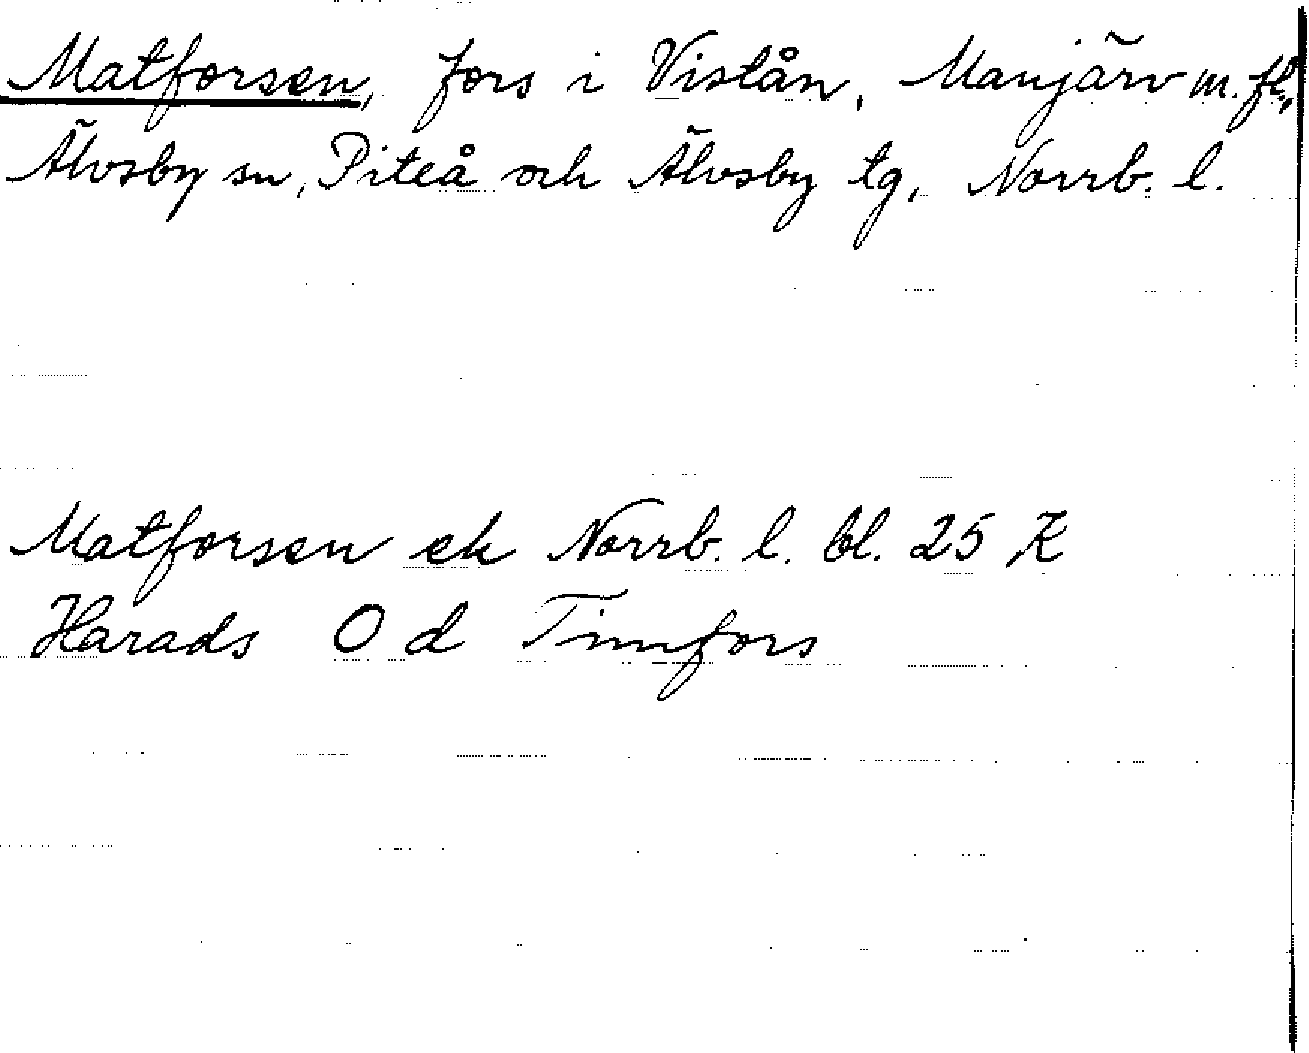 Matforsen, fors i Vistån, Manjärv m. fl.,
Älvsby sn, Piteå och Älvsby tg, Norrb. l.
Matforsen ek Norrb. l. bl. 25 K
Harads O d Timfors